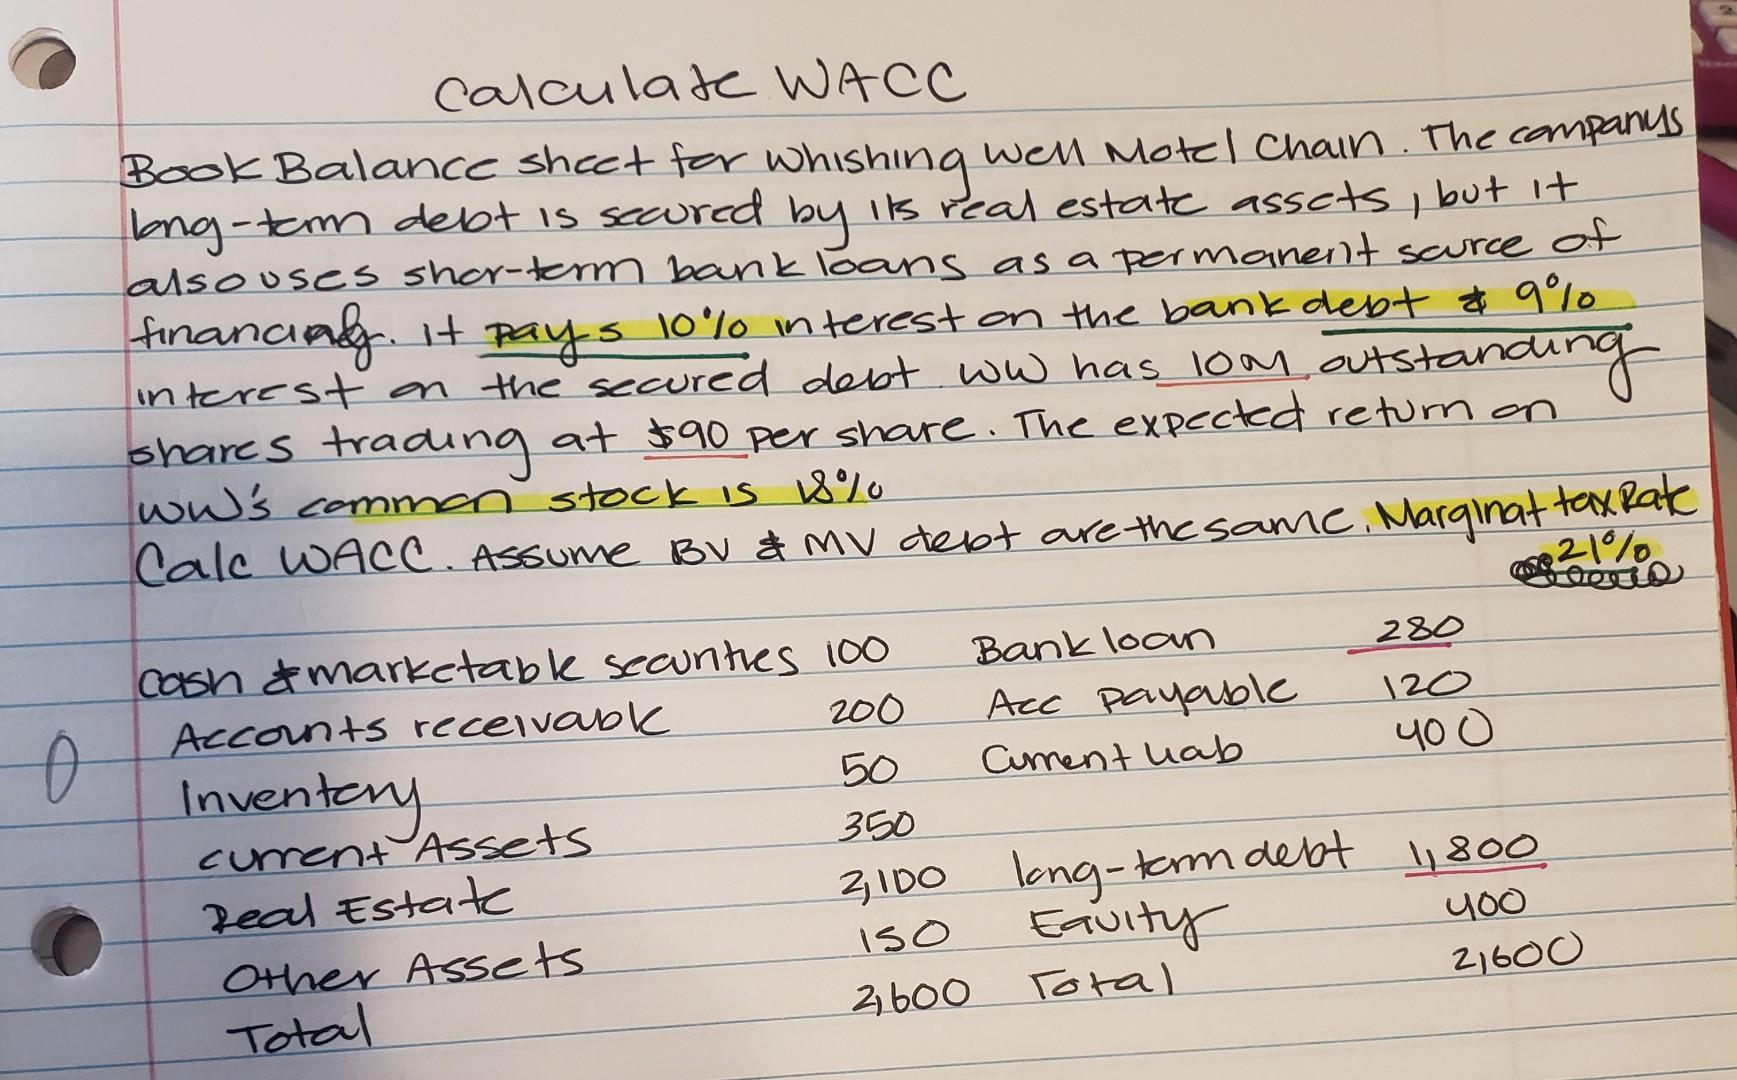 Calculate WACC
Book Balance sheet for Whishing Well Motel Chain. The companys
long-term debt is secured by its real estate assets, but it
also uses shor-term bank loans as a permanent source of
financing. it pays 10% interest on the bank debt & 9%
interest on the secured debt. WW has 10M outstanding
shares trading at $90 per share. The expected return on
WW's common stock is 18%
Calc WACC. Assume BV & MV debt are the same. Marginal tax Rate
21%
Cash & marketable securities 100 Bank loan 280
Accounts receivable 200 Acc payable 120
Inventory 50 Current liab 400
current Assets 350
Real Estate 2,100 long-term debt 1,800
Other Assets 150 Equity 400
Total 2,600 Total 2,600
0